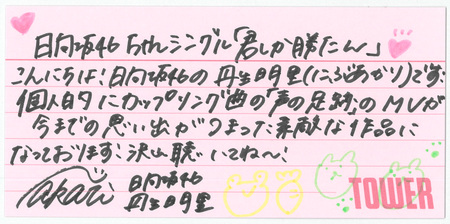 日向坂46 7thシングル「君しか勝たん」
こんにちは！日向坂46の丹生明里(にぶあかり)です。
個人的にカップリング曲の「声の足跡」のMVが
今までの思い出がつまった素敵な作品に
なっております！沢山聴いてね〜！
Akari
日向坂46
丹生明里
TOWER